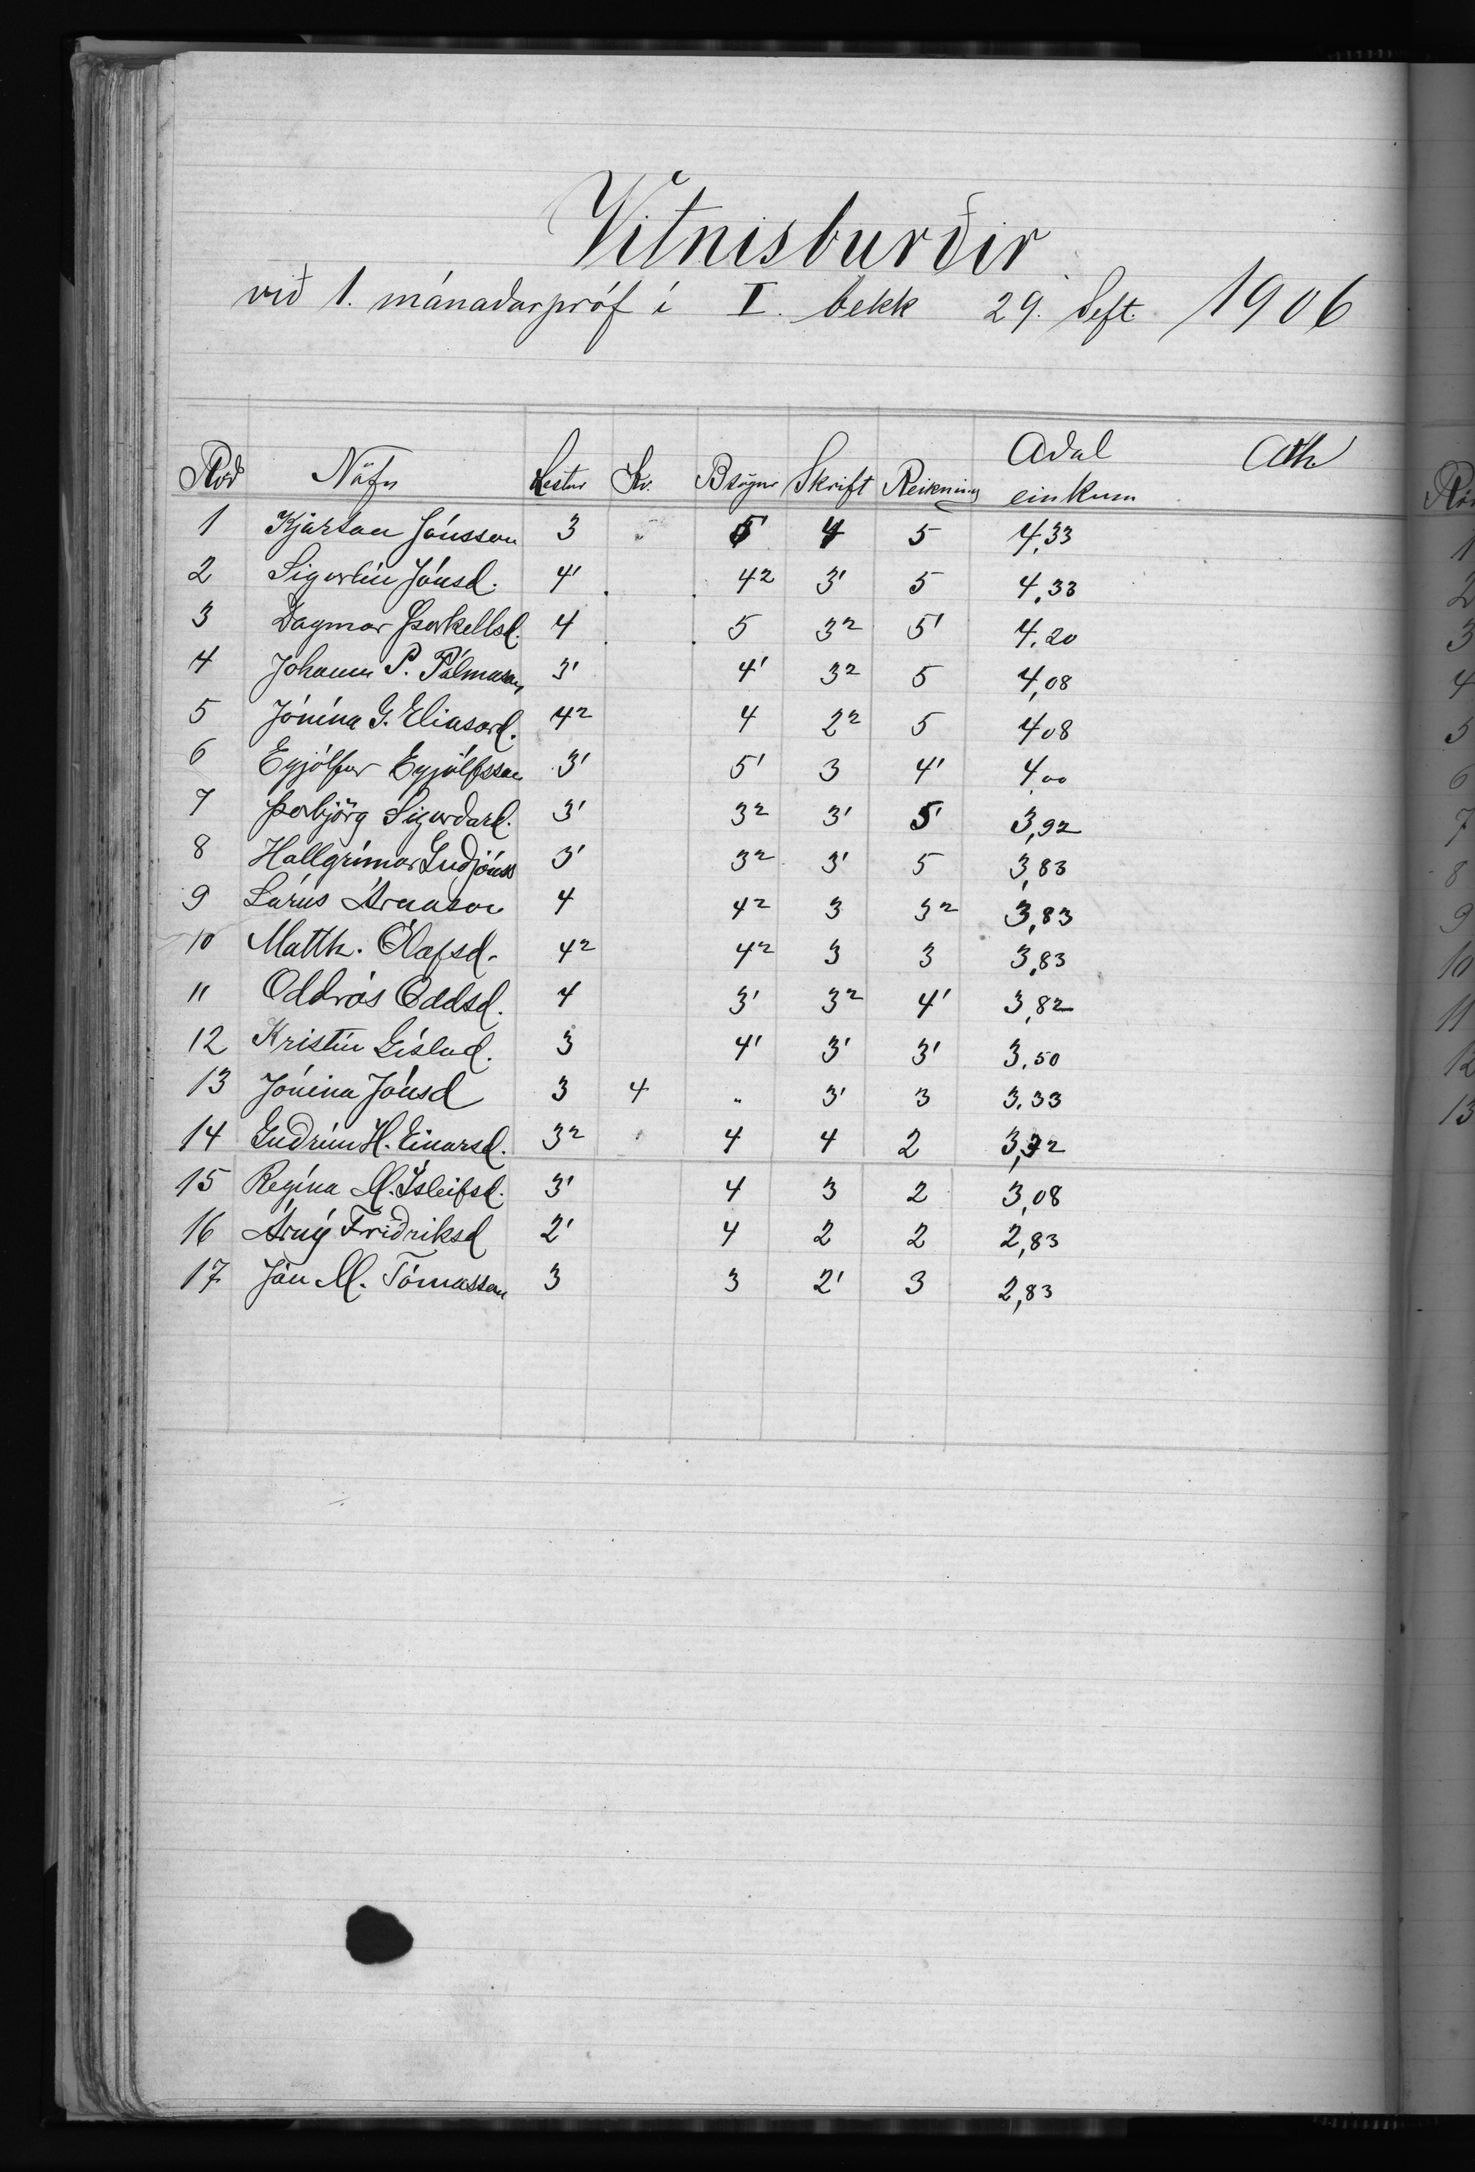 Vitnisburðir
við 1. mánaðarpróf í I. bekk 29. Sept. 1906
Röð Nöfn Lestur Kv. Bsögur Skrift Reikning Aðal einkunn Ath
1 Kjartan Jónsson 3 5 4 5 4,33
2 Sigurlín Jónsd. 4' 4² 3' 5 4,33
3 Dagmar Þorkellsd. 4 5 3² 5' 4,20
4 Johann P. Pálmason 3' 4' 3² 5 4,08
5 Jónína G. Elíasard. 4² 4 2² 5 408
6 Eyjólfur Eyjólfsson 3' 5' 3 4' 4,00
7 Þorbjörg Sigurðard. 3' 3² 3' 5' 3,92
8 Hallgrímur Guðjónss 3' 3² 3' 5 3,83
9 Lárus Árnason 4 4² 3 3² 3,83
10 Matth. Ólafsd. 4² 4² 3 3 3,83
11 Oddrós Oddsd. 4 3' 3² 4' 3,82
12 Kristín Gíslad. 3 4' 3' 3' 3.50
13 Jónína Jónsd 3 4 " 3' 3 3.33
14 Guðrún H. Einarsd. 3² 4 4 2
15 Regína M. Ísleifsd. 3' 4 3 2 3,08
16 Árný Friðriksd 2' 4 2 2 2,83
17 Jón M. Tómasson 3 3 2' 3 2,83
1
2
3
4
5
6
7
8
9
10
11
12
13